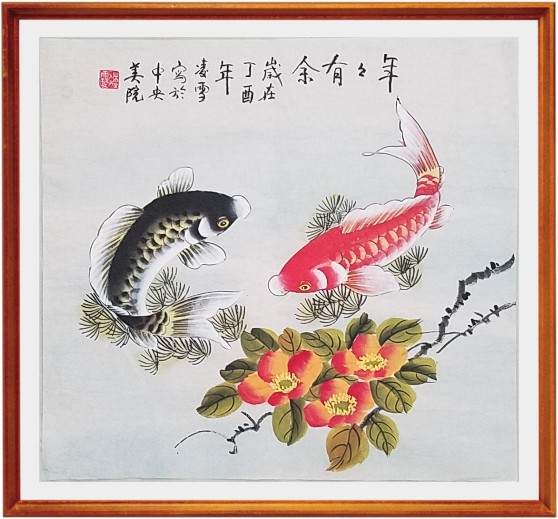 年々有余
歲在
丁酉
年
凌雪
寫於
中央
美院